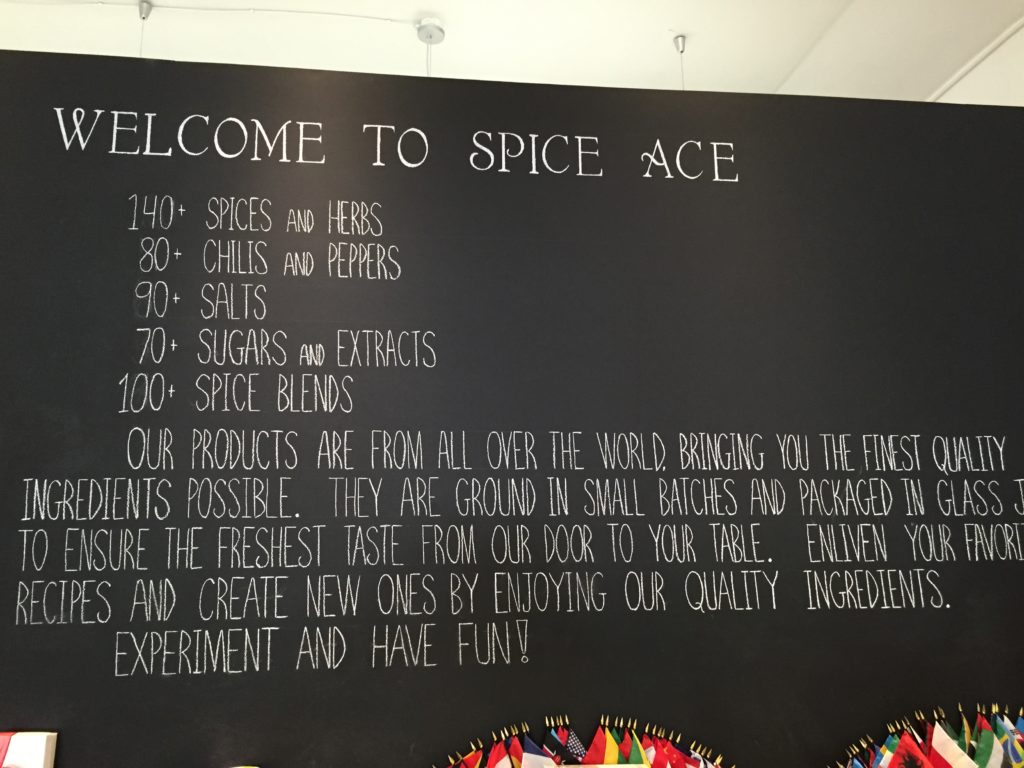 WELCOME TO SPICE ACE
140+ SPICES AND HERBS
80+ CHILIS AND PEPPERS
90+ SALTS
70+ SUGARS AND EXTRACTS
100+ SPICE BLENDS
OUR PRODUCTS ARE FROM ALL OVER THE WORLD, BRINGING YOU THE FINEST QUALITY
INGREDIENTS POSSIBLE. THEY ARE GROUND IN SMALL BATCHES AND PACKAGED IN GLASS
TO ENSURE THE FRESHEST TASTE FROM OUR DOOR TO YOUR TABLE. ENLIVEN YOUR
RECIPES AND CREATE NEW ONES BY ENJOYING OUR QUALITY INGREDIENTS.
EXPERIMENT AND HAVE FUN!